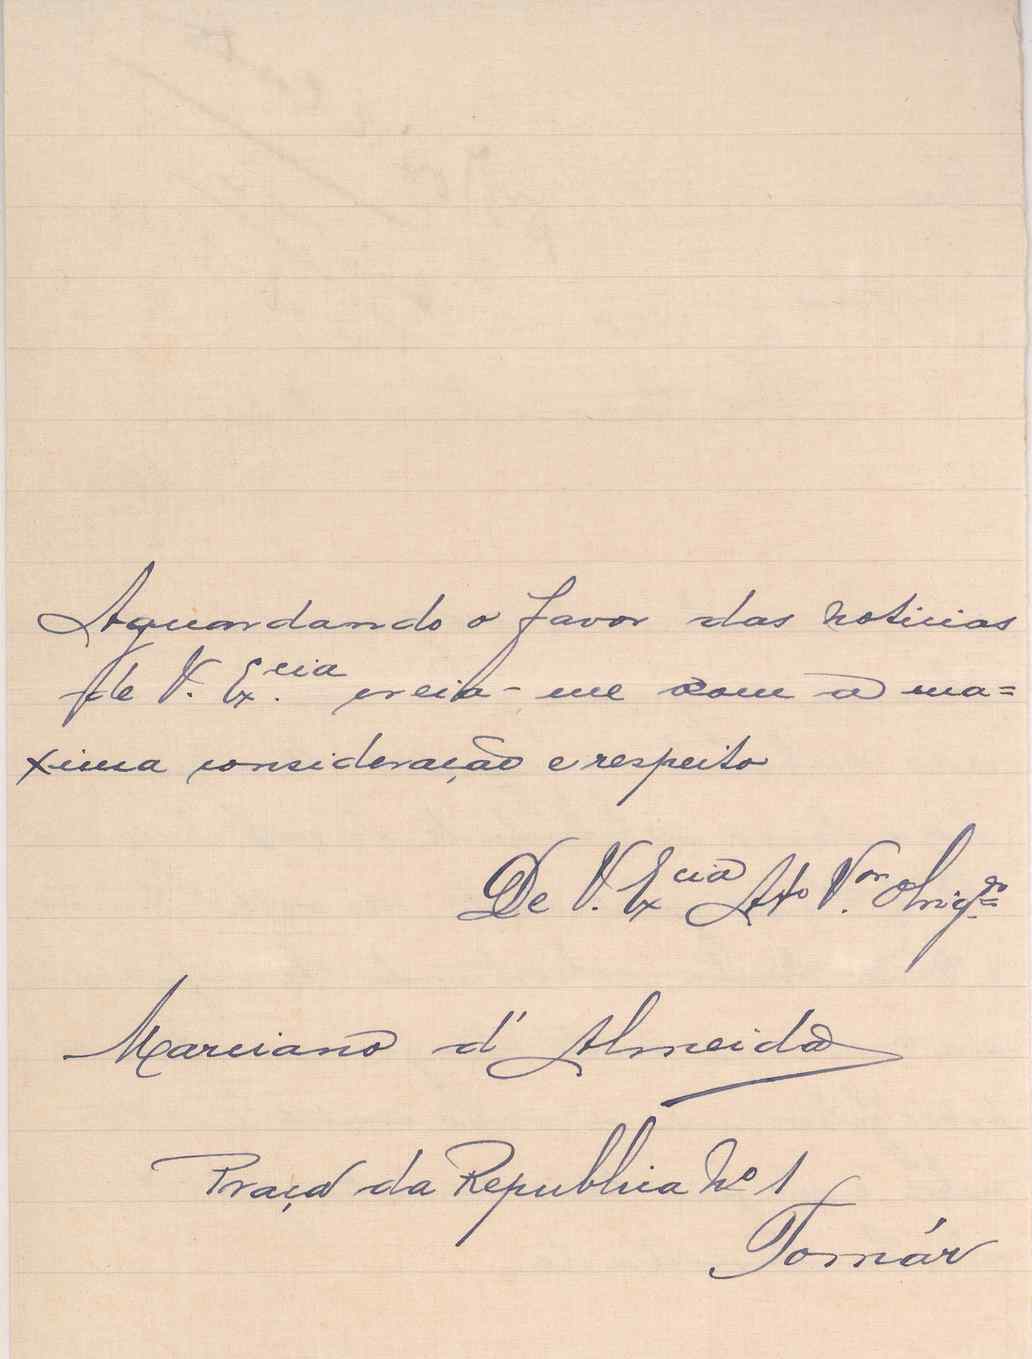 Aguardando o favor das noticias
de V. Ex.cia creia-me com a ma=
xima consideração e respeito
De V. Excia Atto V.or Obrig.do
Marciano d'Almeida
Praça da Republica Nº 1
Tomár